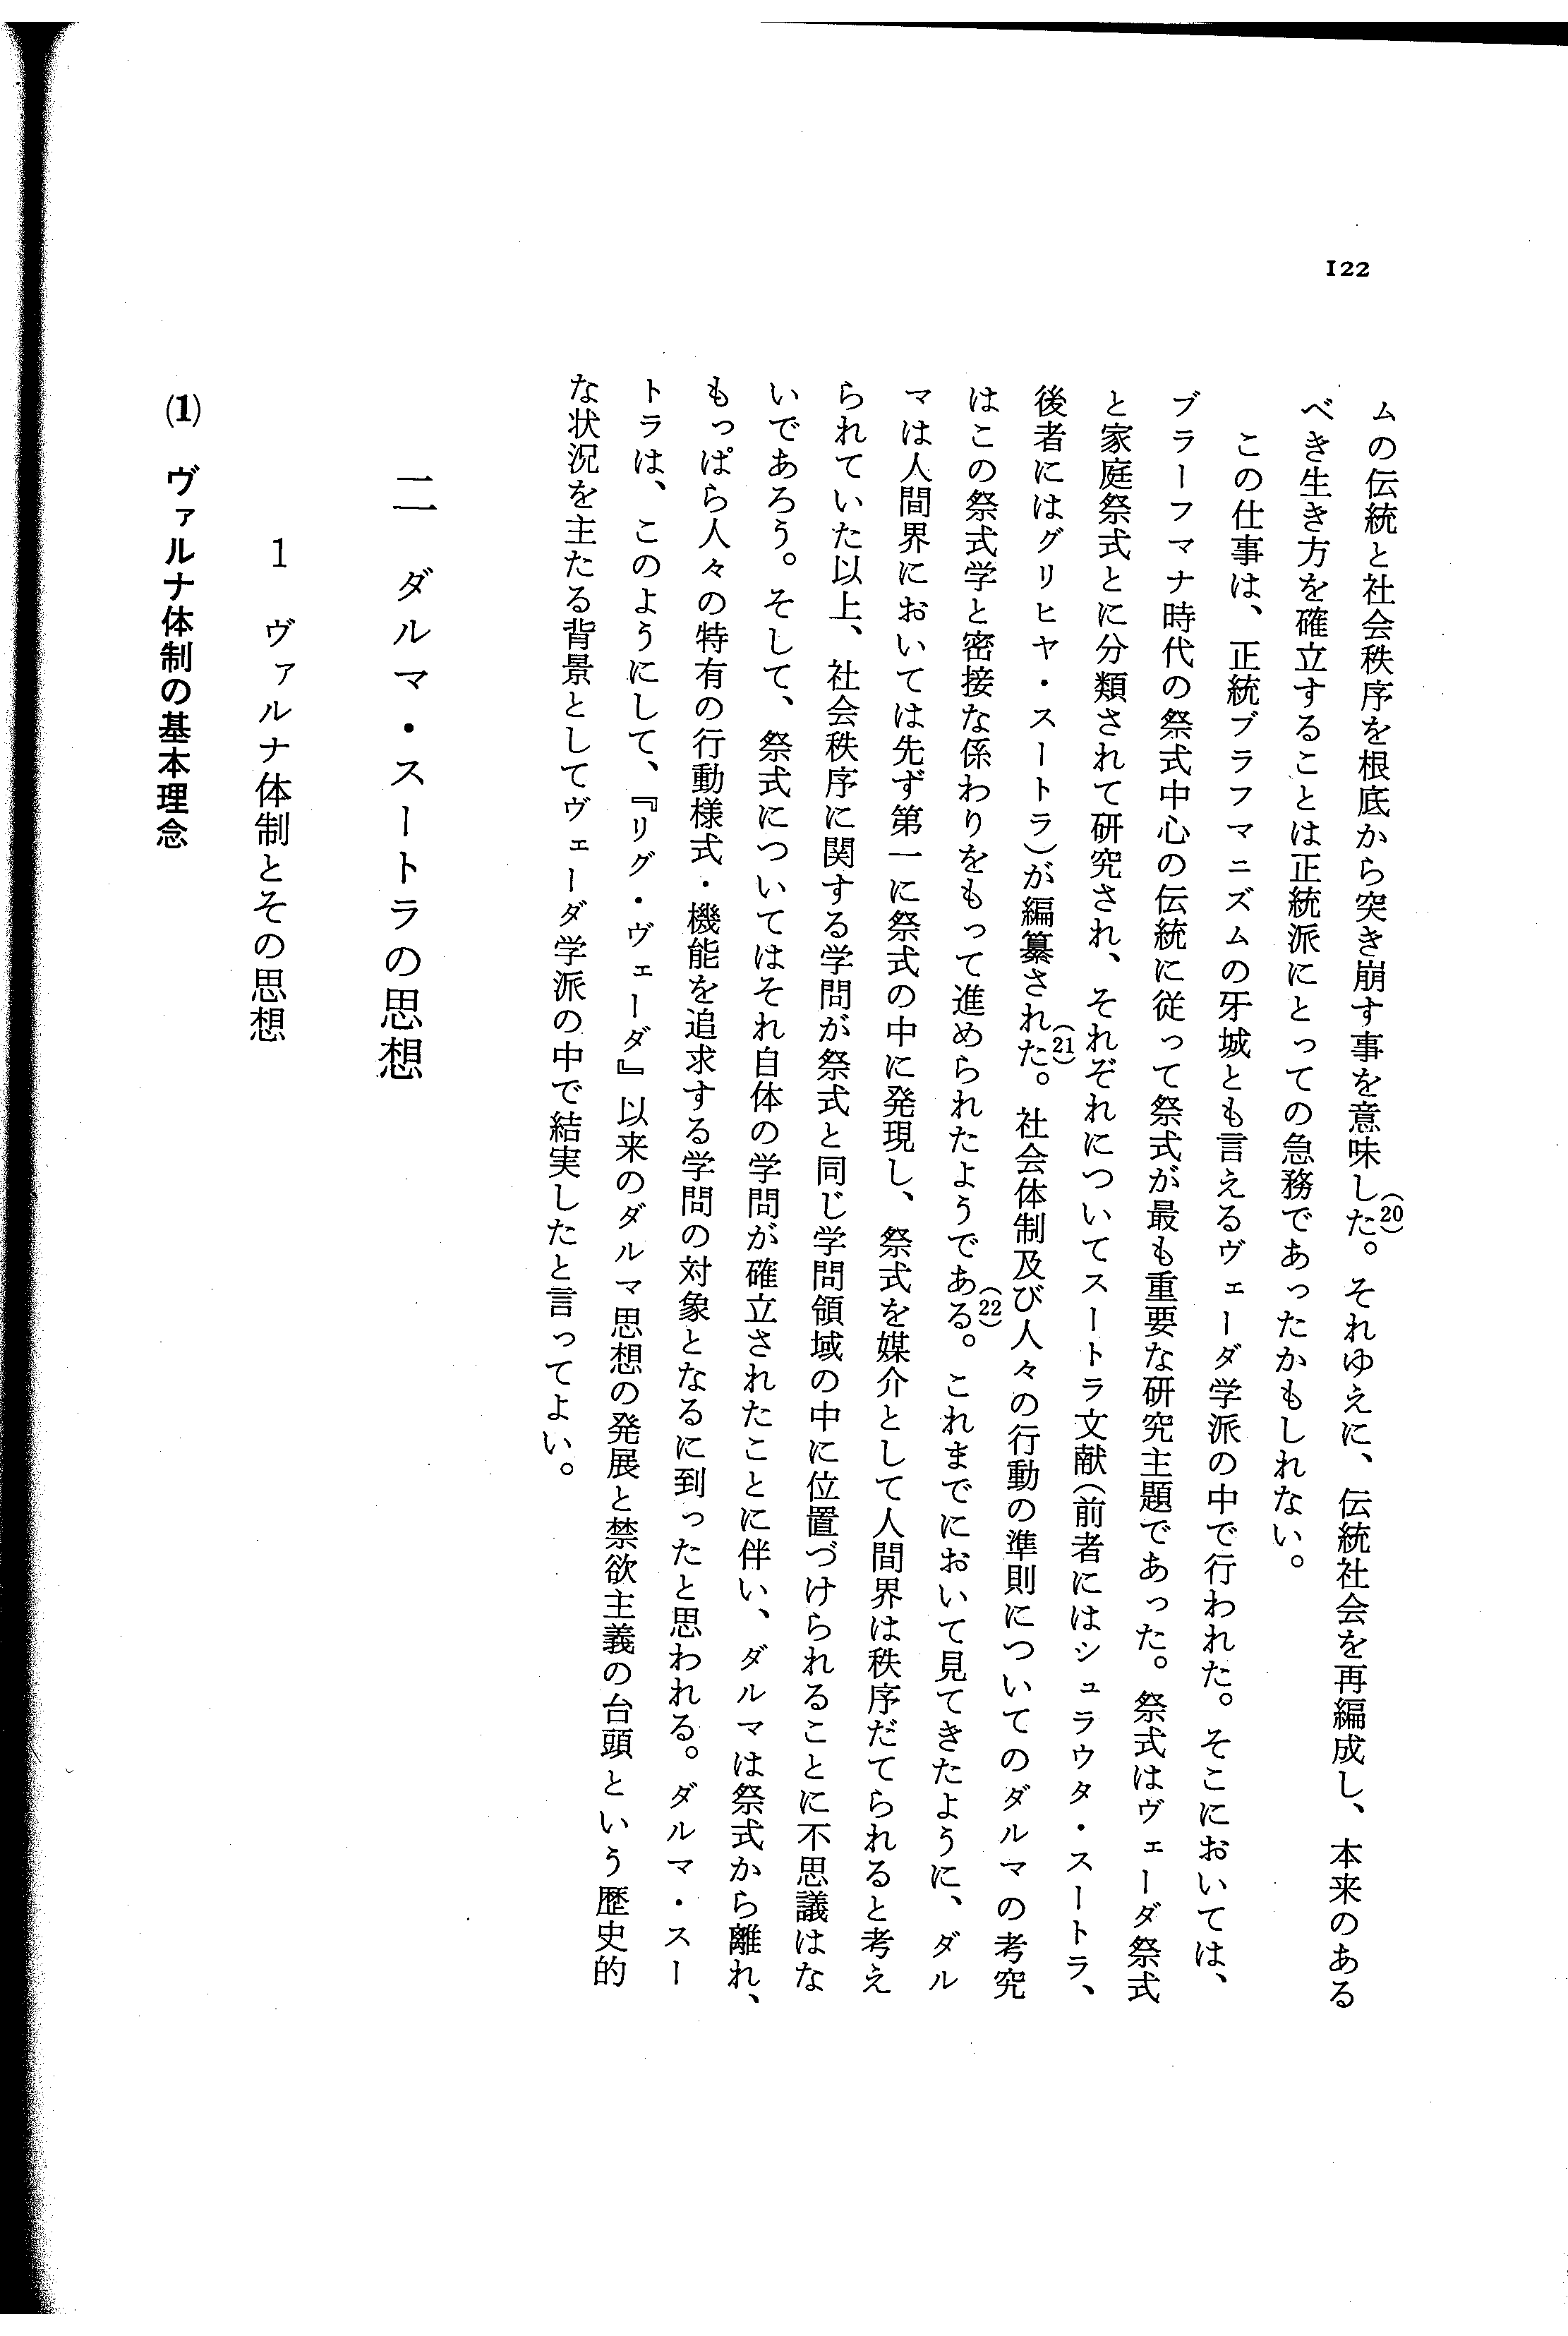 122
ムの伝統と社会秩序を根底から突き崩す事を意味した。(20)それゆえに、伝統社会を再編成し、本来のある
べき生き方を確立することは正統派にとっての急務であったかもしれない。
この仕事は、正統ブラフマニズムの牙城とも言えるヴェーダ学派の中で行われた。そこにおいては、
ブラーフマナ時代の祭式中心の伝統に従って祭式が最も重要な研究主題であった。祭式はヴェーダ祭式
と家庭祭式とに分類されて研究され、それぞれについてスートラ文献(前者にはシュラウタ・スートラ、
後者にはグリヒヤ・スートラ)が編纂された。(21)社会体制及び人々の行動の準則についてのダルマの考究
はこの祭式学と密接な係わりをもって進められたようである。(22)これまでにおいて見てきたように、ダル
マは人間界においては先ず第一に祭式の中に発現し、祭式を媒介として人間界は秩序だてられると考え
られていた以上、社会秩序に関する学問が祭式と同じ学問領域の中に位置づけられることに不思議はな
いであろう。そして、祭式についてはそれ自体の学問が確立されたことに伴い、ダルマは祭式から離れ、
もっぱら人々の特有の行動様式・機能を追求する学問の対象となるに到ったと思われる。ダルマ・スー
トラは、このようにして、『リグ・ヴェーダ』以来のダルマ思想の発展と禁欲主義の台頭という歴史的
な状況を主たる背景としてヴェーダ学派の中で結実したと言ってよい。
二 ダルマ・スートラの思想
1 ヴァルナ体制とその思想
(1) ヴァルナ体制の基本理念